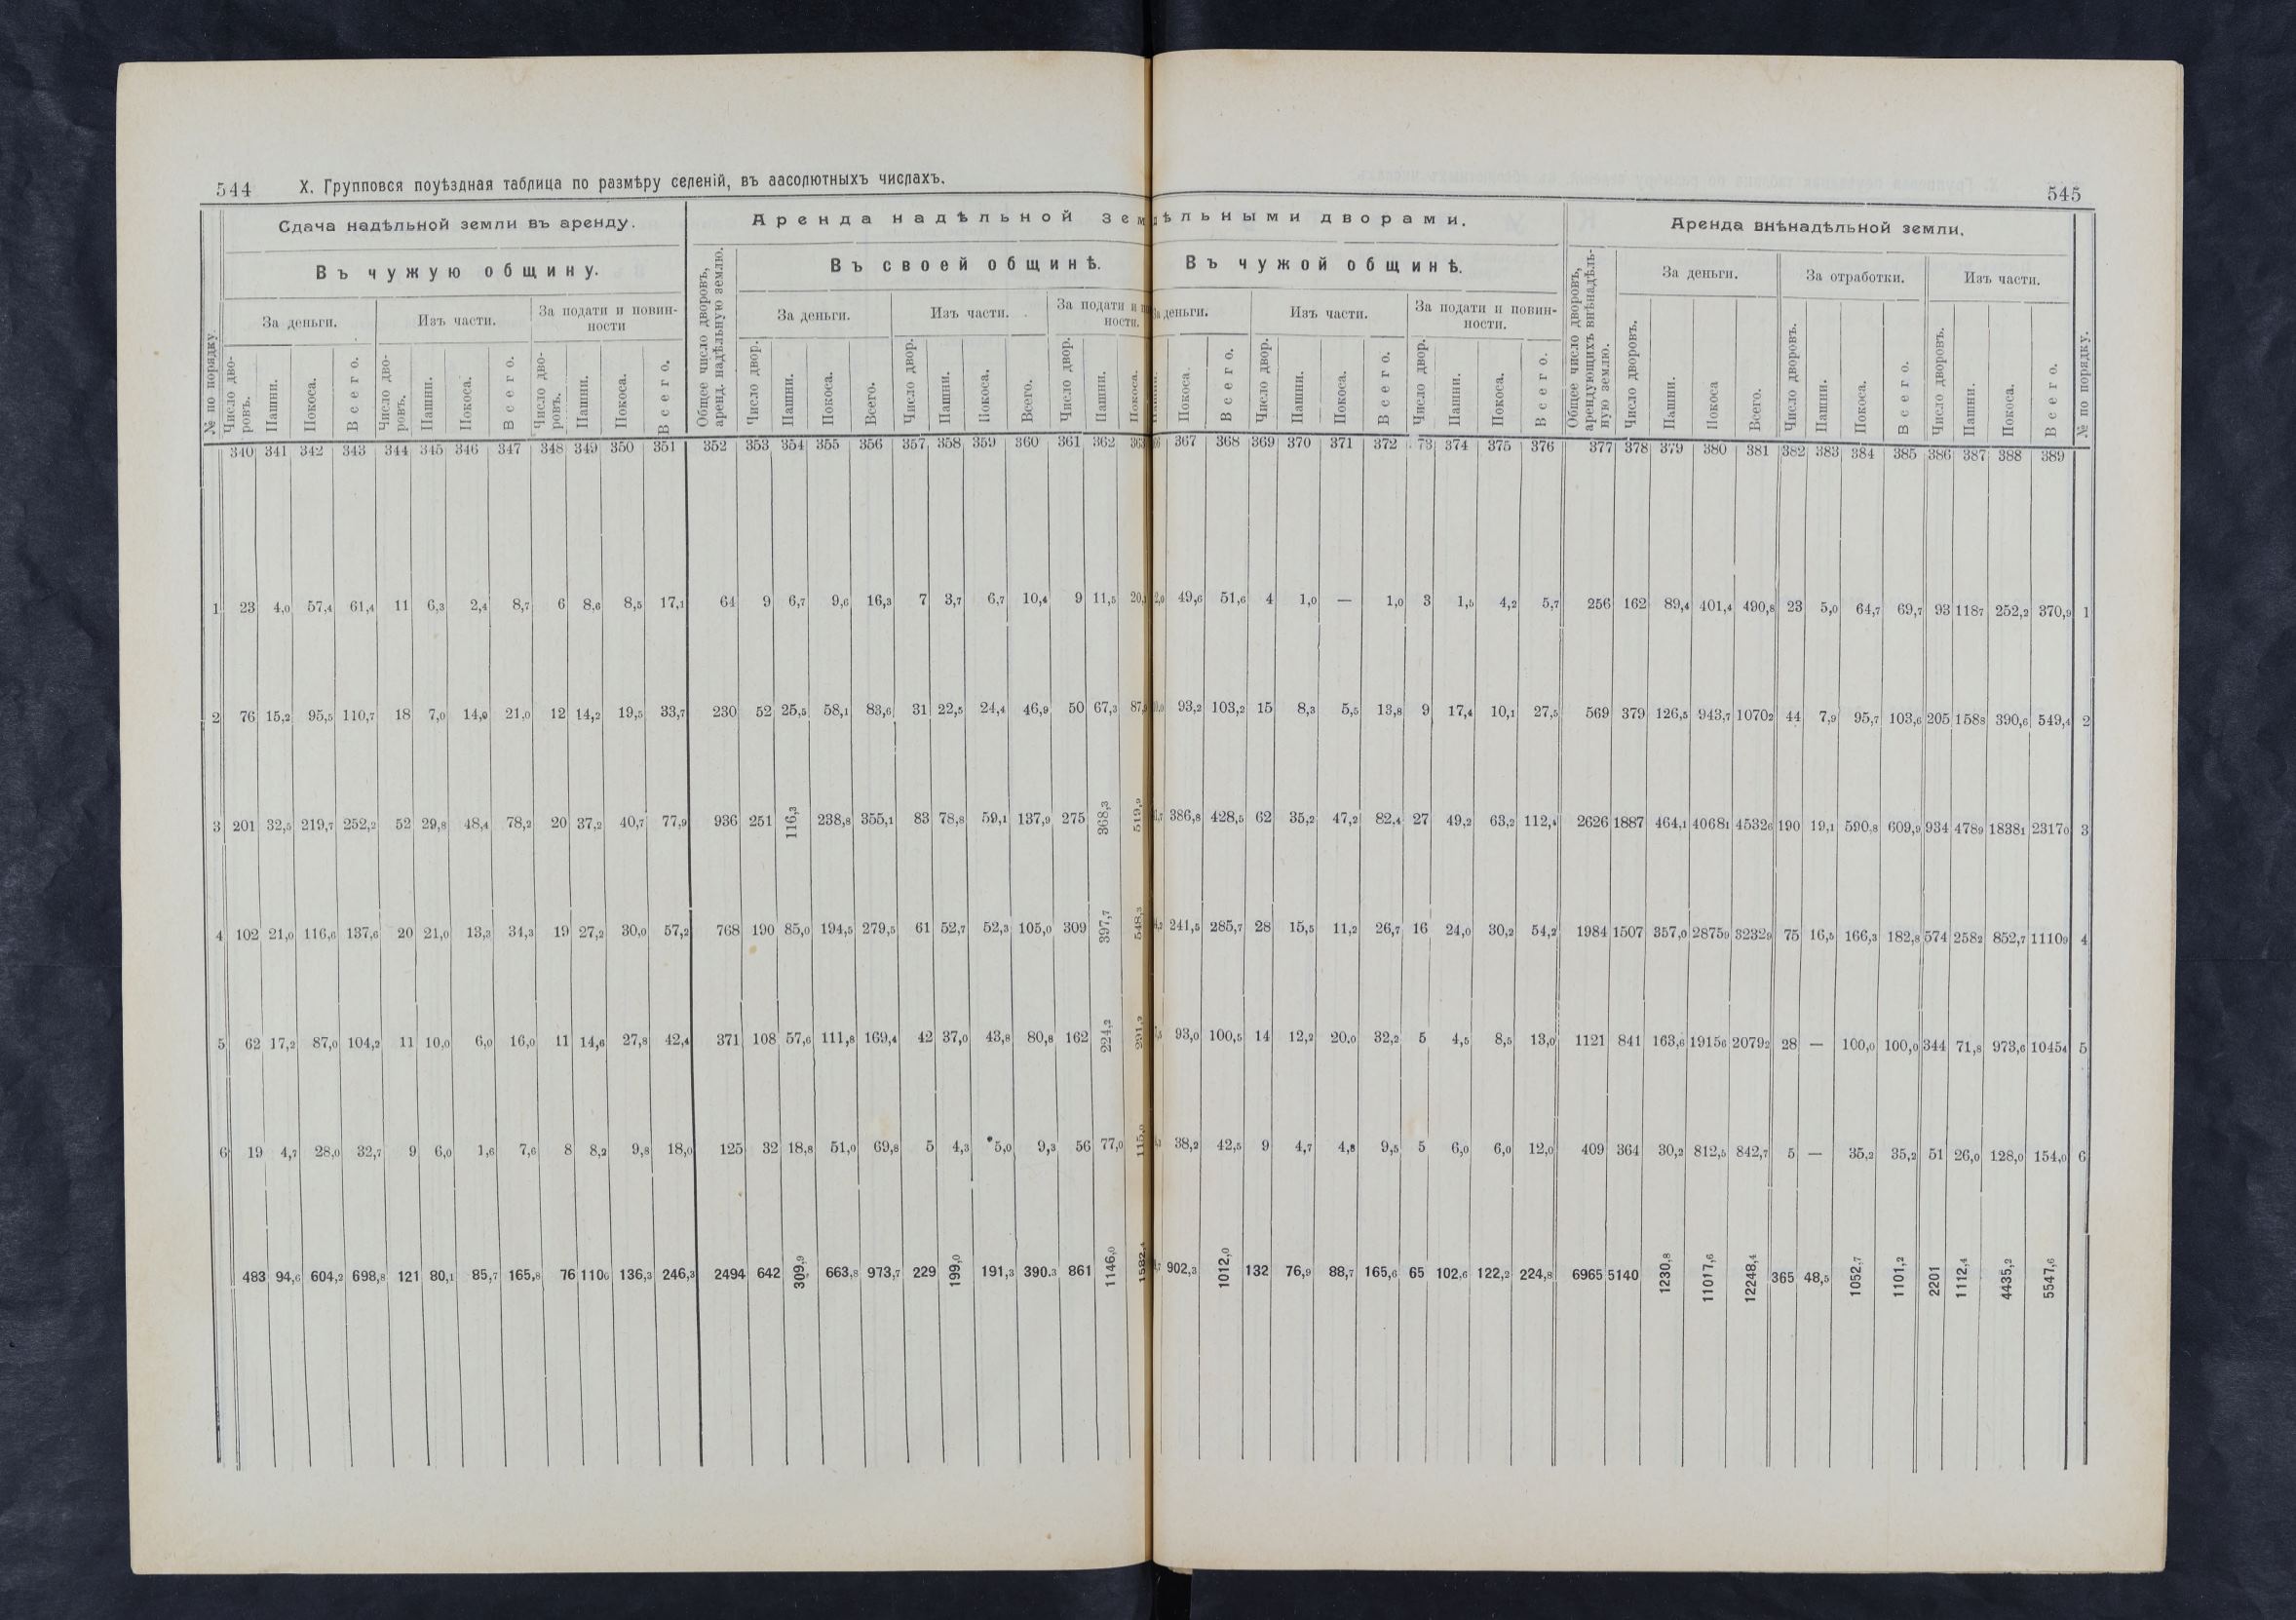 544 X. Групповся поуѣздная таблица по размѣру селеній, въ аасолютныхъ числахъ.
545
Сдача надѣльной земли въ аренду. Аренда надѣльной зем дѣльными дворами. Аренда внѣнадѣльной земли.
Въ чужую общину. Въ своей общинѣ. Въ чужой общинѣ.
За деньги. Изъ части. За подати и повинности За деньги. Изъ части. За подати и ности. деньги. Изъ части. За подати и повинности. За деньги. За отработки. Изъ части.
№ по порядку. Число дворовъ. Пашни. Покоса. Всего. Число дворовъ. Пашни. Покоса. Всего. Число дворовъ. Пашни. Покоса. Всего. Общее число дворовъ, аренд. надѣльную землю. Число двор. Пашни. Покоса. Всего. Число двор. Пашни. Покоса. Всего. Число двор. Пашни. Покоса. Покоса. Всего. Число двор. Пашни. Покоса. Всего. Число двор. Пашни. Покоса. Всего. Общее число дворовъ, арендующихъ внѣнадѣльную землю. Число дворовъ. Пашни. Покоса Всего. Число дворовъ. Пашни. Покоса. Всего. Число дворовъ. Пашни. Покоса. Всего. № по порядку.
340 341 342 343 344 345 346 347 348 349 350 351 352 353 354 355 356 357 358 359 360 361 362 363 367 368 369 370 371 372 73 374 375 376 377 378 379 380 381 382 383 384 385 386 387 388 389
1 23 4,0 57,4 61,4 11 6,3 2,4 8,7 6 8,6 8,5 17,1 64 9 6,7 9,6 16,3 7 3,7 6,7 10,4 9 11,5 49,6 51,6 4 1,0 — 1,0 3 1,5 4,2 5,7 256 162 89,4 401,4 490,8 23 5,0 64,7 69,7 93 1187 252,2 370,9 1
2 76 15,2 95,5 110,7 18 7,0 14,0 21,0 12 14,2 19,5 33,7 230 52 25,5 58,1 83,6 31 22,5 24,4 46,9 50 67,3 93,2 103,2 15 8,3 5,5 13,8 9 17,4 10,1 27,5 569 379 126,5 943,7 10702 44 7,9 95,7 103,6 205 1588 390,6 549,4 2
3 201 32,5 219,7 252,2 52 29,8 48,4 78,2 20 37,2 40,7 77,9 936 251 116,3 238,8 355,1 83 78,8 59,1 137,9 275 368,3 519,9 386,8 428,5 62 35,2 47,2 82,4 27 49,2 63,2 112,4 2626 1887 464,1 40681 45326 190 19,1 590,8 609,9 934 4789 18381 23170 3
4 102 21,0 116,6 137,6 20 21,0 13,3 34,3 19 27,2 30,0 57,2 768 190 85,0 194,5 279,5 61 52,7 52,3 105,0 309 397,7 548,3 241,5 285,7 28 15,5 11,2 26,7 16 24,0 30,2 54,2 1984 1507 357,0 28759 32329 75 16,5 166,3 182,8 574 2582 852,7 11109 4
5 62 17,2 87,0 104,2 11 10,0 6,0 16,0 11 14,6 27,8 42,4 371 108 57,6 111,8 169,4 42 37,0 43,8 80,8 162 224,2 93,0 100,5 14 12,2 20.0 32,2 5 4,5 8,5 13,0 1121 841 163,6 19156 20792 28 — 100,0 100,0 344 71,8 973,6 10454 5
6 19 4,7 28,0 32,7 9 6,0 1,6 7,6 8 8,2 9,8 18,0 125 32 18,8 51,0 69,8 5 4,3 5,0 9,3 56 77,0 115,0 38,2 42,5 9 4,7 4,8 9,5 5 6,0 6,0 12,0 409 364 30,2 812,5 842,7 5 — 35,2 35,2 51 26,0 128,0 154,0 6
483 94,6 604,2 698,8 121 80,1 85,7 165,8 76 1106 136,3 246,3 2494 642 309,9 663,8 973,7 229 199,0 191,3 390.3 861 1146,0 1582,4 902,3 1012,0 132 76,9 88,7 165,6 65 102,6 122,2 224,8 6965 5140 1230,8 11017,6 12248,4 365 48,5 1052,7 1101,2 2201 1112,4 4435,2 5547,6